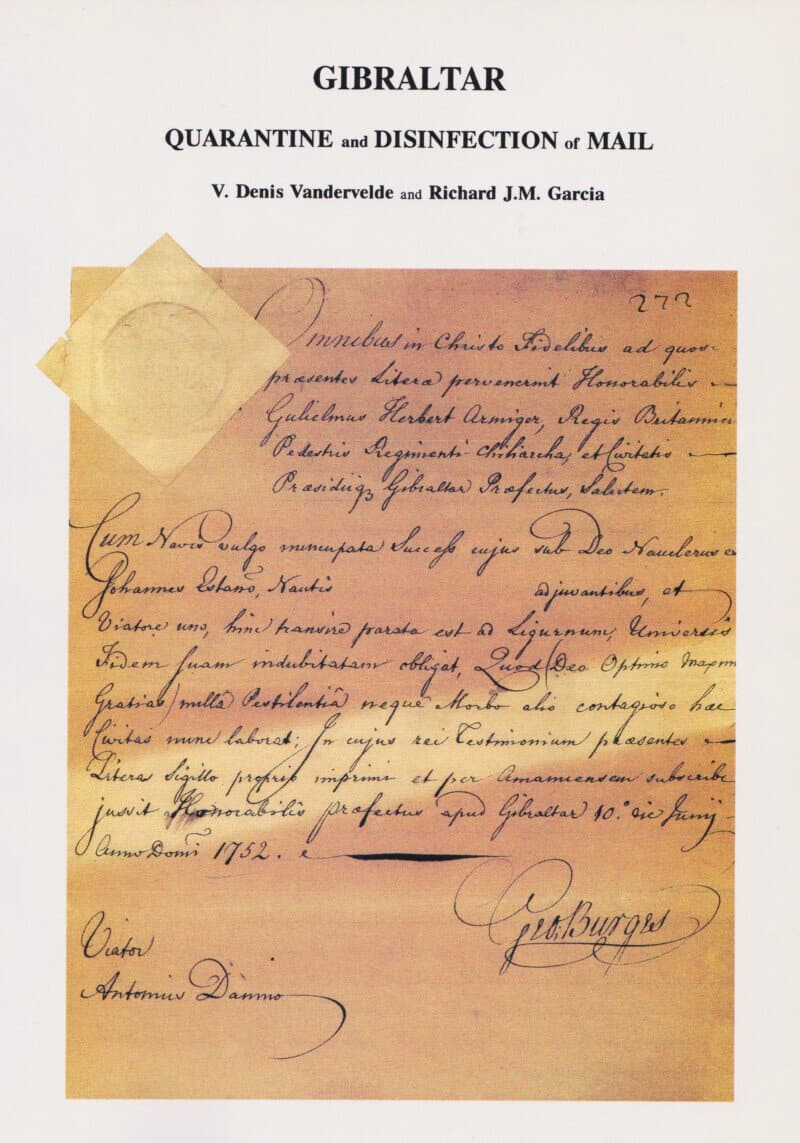 GIBRALTAR
QUARANTINE and DISINFECTION of MAIL
V. Denis Vandervelde and Richard J.M. Garcia
272
Omnibus in Christo Fidelibus ad quos
præsentes Literæ pervenerint Honorabilis
Gulielmus Herbert Armiger, Regis Britannici
Pedestris Regimenti Chiliarcha, et Civitatis
Præsidiiq Gibraltar Præfectus, Salutem.
Cum Navis vulgo nuncupata Success cujus sub Deo Nauclerus e
Johannes Nautis adjuvantibus, et
Viatore uno, hinc transire parata est ad Ligurnum, Universis
Fidem suam indubitatam obligat, Quod (Deo Optimo Maxim
Gratias) nullâ Pestilentiâ neque Morbo alio contagioso hæc
Civitas nunc laborat; In cujus rei Testimonium præsentes
Literas Sigillo proprio imprimi et per Amanuensem subscribi
jussit Honorabilis Præfectus apud Gibraltar 10.º die Junij
Anno Domi 1752.
Geo. Burges
Viator
Antonius Danino